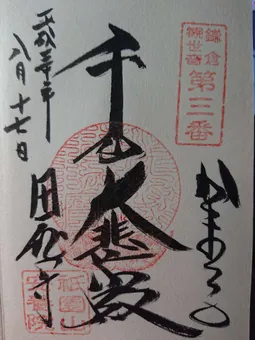 鎌倉
観世音
第三番
かまくら
千手大悲殿
田代寺
平成三十年
八月十七日
祇園山
安養院